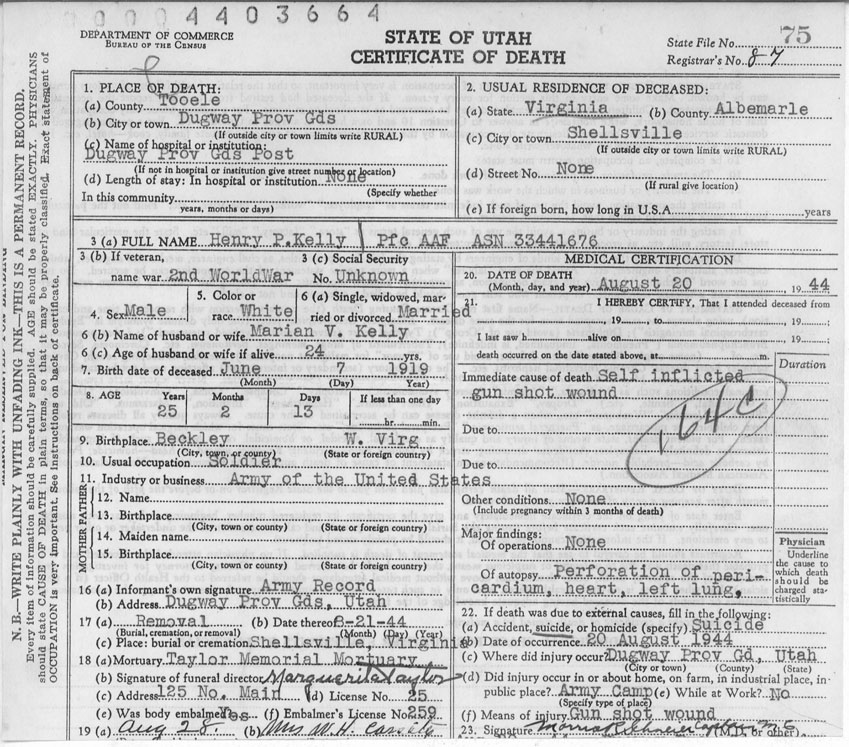 00004403664
DEPARTMENT OF COMMERCE
BUREAU OF THE CENSUS
STATE OF UTAH
CERTIFICATE OF DEATH
State File No. 75
Registrar's No. 87
N. B.—WRITE PLAINLY WITH UNFADING INK—THIS IS A PERMANENT RECORD.
Every item of information should be carefully supplied. AGE should be stated EXACTLY. PHYSICIANS
should state CAUSE OF DEATH in plain terms, so that it may be properly classified. Exact statement of
OCCUPATION is very important. See instructions on back of certificate.
1. PLACE OF DEATH:
(a) County Tooele
(b) City or town Dugway Prov Gds
(If outside city or town limits write RURAL)
(c) Name of hospital or institution:
Dugway Prov Gds Post
(If not in hospital or institution give street number or location)
(d) Length of stay: In hospital or institution None
(Specify whether
In this community
years, months or days)
2. USUAL RESIDENCE OF DECEASED:
(a) State Virginia (b) County Albemarle
(c) City or town Shellsville
(If outside city or town limits write RURAL)
(d) Street No. None
(If rural give location)
(e) If foreign born, how long in U.S.A. years
3 (a) FULL NAME Henry P.Kelly Pfc AAF ASN 33441676
3 (b) If veteran, 3 (c) Social Security
name war 2nd WorldWar No. Unknown
4. Sex Male 5. Color or race White 6 (a) Single, widowed, married or divorced Married
6 (b) Name of husband or wife Marian V. Kelly
6 (c) Age of husband or wife if alive 24 yrs.
7. Birth date of deceased June 7 1919
(Month) (Day) Year)
8. AGE Years Months Days If less than one day
25 2 13 hr. min.
9. Birthplace Beckley W. Virg
(City, town or county) (State or foreign country)
10. Usual occupation Soldier
11. Industry or business Army of the United States
FATHER
12. Name
13. Birthplace
(City, town or county) (State or foreign country)
MOTHER
14. Maiden name
15. Birthplace
(City, town or county) (State or foreign country)
16 (a) Informant's own signature Army Record
(b) Address Dugway Prov Gds, Utah
17 (a) Removal (b) Date thereof 8-21-44
(Burial, cremation, or removal) (Month) (Day) (Year)
(c) Place: burial or cremation Shellsville, Virginia
18 (a) Mortuary Taylor Memorial Mortuary
(b) Signature of funeral director Marguerite Taylor
(c) Address 125 No. Main (d) License No. 25
(e) Was body embalmed Yes (f) Embalmer's License No. 259
19 (a) Aug 28. (b) Mrs W.H.
MEDICAL CERTIFICATION
20. DATE OF DEATH
(Month, day, and year) August 20 , 1944
21. I HEREBY CERTIFY, That I attended deceased from
, 19 ; to , 19 ;
I last saw h alive on , 19 ;
death occurred on the date stated above, at m.
Duration
Immediate cause of death Self inflicted
gun shot wound
164c
Due to
Due to
Other conditions None
(Include pregnancy within 3 months of death)
Major findings:
Of operations None
Of autopsy Perforation of peri-
cardium, heart, left lung,
Physician
Underline
the cause to
which death
should be
charged sta-
tistically
22. If death was due to external causes, fill in the following:
(a) Accident, suicide, or homicide (specify) Suicide
(b) Date of occurrence 20 August 1944
(c) Where did injury occur? Dugway Prov Gd, Utah
(City or town) (County) (State)
(d) Did injury occur in or about home, on farm, in industrial place, in
public place? Army Camp (e) While at Work? No
(Specify type of place)
(f) Means of injury Gun shot wound
23. Signature (M.D. or other)